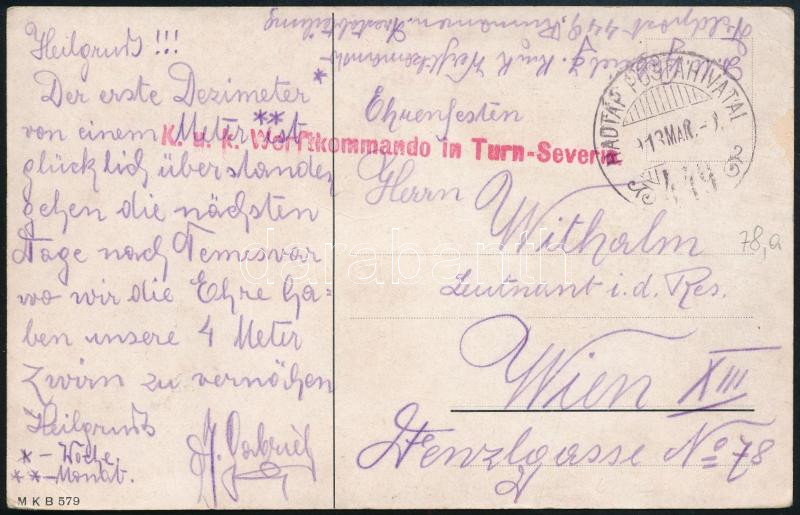 Heilgruß !!!
Der erste Dezimeter *
von einem Meter ** ist
glücklich überstanden
gehen die nächsten
Tage nach Temesvar
wo wir die Ehre ha-
ben unsere 4 Meter
Zwirn zu vernähen
Heilgruß
* - Woche.
** - Monat.
J. Gabriel
M K B 579
Feldpost 449, Rumänien.
K. u. k. Werftkommando in Turn-Severin
TÁBORI POSTAHIVATAL
913 MAR.
449
Ehrenfesten
Herrn
Withalm
Leutnant i. d. Res.
Wien XIII
Penzlgasse No 78
78,a
darabanth